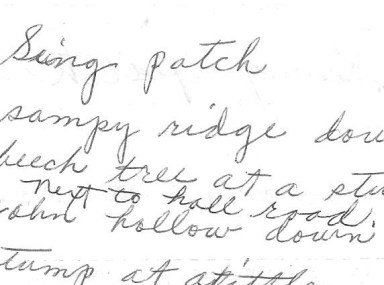 Sing patch
sampy ridge dow
beech tree at a stu
next to hall road
John hollow down
stump at a little